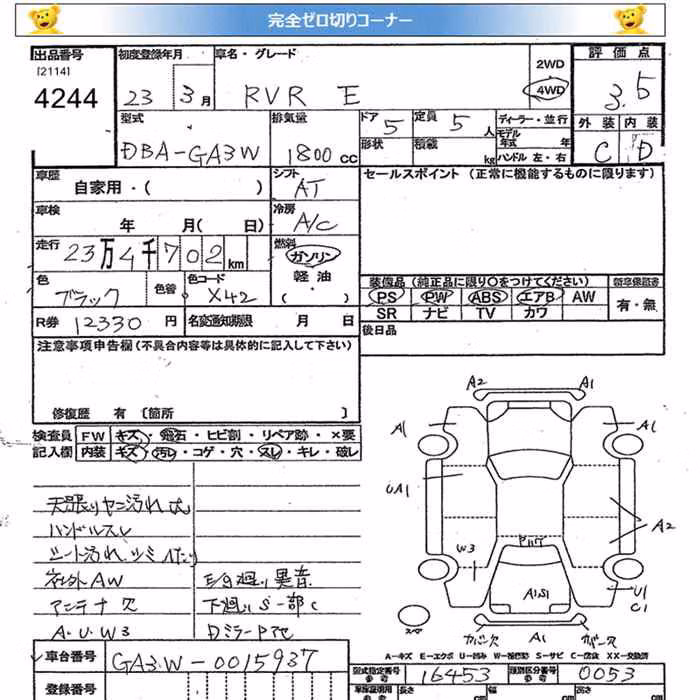 完全ゼロ切りコーナー
出品番号 初度登録年月 車名・グレード 2WD 評価点
[2114]
4244 23 3月 RVR E 4WD 3.5
型式 排気量 ドア 定員 ディーラー・並行 外装 内装
DBA-GA3W 1800cc 5 5人 モデル年式 年 C D
形状 積載 kg ハンドル 左・右
車歴 シフト セールスポイント (正常に機能するものに限ります)
自家用・( ) AT
車検 冷房
年 月( 日) A/C
走行 燃料
23万4千702km ガソリン
軽油
色 色替 色コード (・)
ブラック X42
装備品 (純正品に限り○をつけてください) 新車保証書
PS PW ABS エアB AW 有・無
SR ナビ TV カワ
R券 12330円 名変通知期限 月 日 後日品
注意事項申告欄(不具合内容等は具体的に記入して下さい)
修復歴 有 〔箇所 〕
検査員 FW キズ・飛石・ヒビ割・リペア跡・×要
記入欄 内装 キズ・汚レ・コゲ・穴・スレ・キレ・破レ
天張りヤニ汚れ大
ハンドルスレ
シート汚れ
社外AW E/g廻り異音
アンテナ欠 下廻りS一部C
A・U・W3 Dミラー
A2 A1
A1 A1
UA1
A2
W3
A1S1
U1
C1
A1
スペア
A-キズ E-エクボ U-凹み W-補修跡 S-サビ C-腐蝕 XX-交換済
車台番号 GA3W-0015937
型式指定番号 参考 16453 類別区分番号 参考 0053
登録番号
長さ 幅 高さ